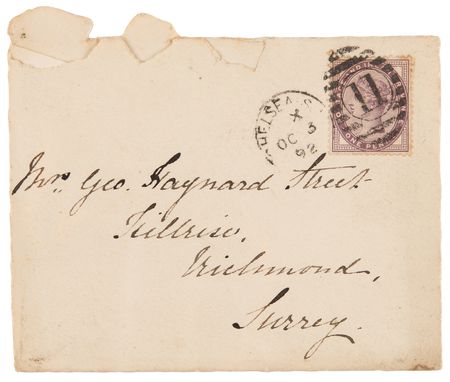 CHELSEA S.
X
OC 3
92
11
ONE PENNY
Mrs Geo. Haynard Street
Hillrise,
Richmond,
Surrey.